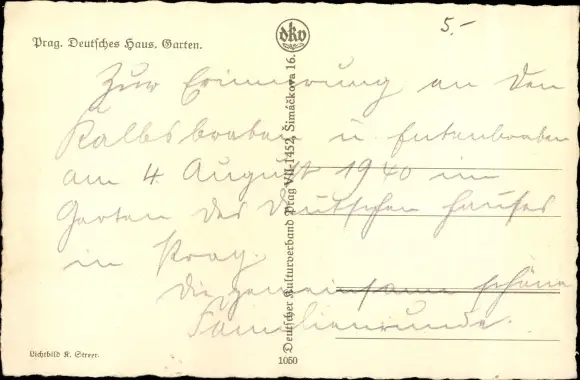 5.-
Prag. Deutsches Haus. Garten.
dkv
Zur Erinnerung an den
Kalbsbraten u. Entenbraten
am 4. August 1940 im
Garten des Deutschen Hauses
in Prag.
Die gemeinsame schöne
Familienrunde.
Deutscher Kulturverband Prag VII-1452, Šimáčkova 16.
Lichtbild K. Streer.
1050